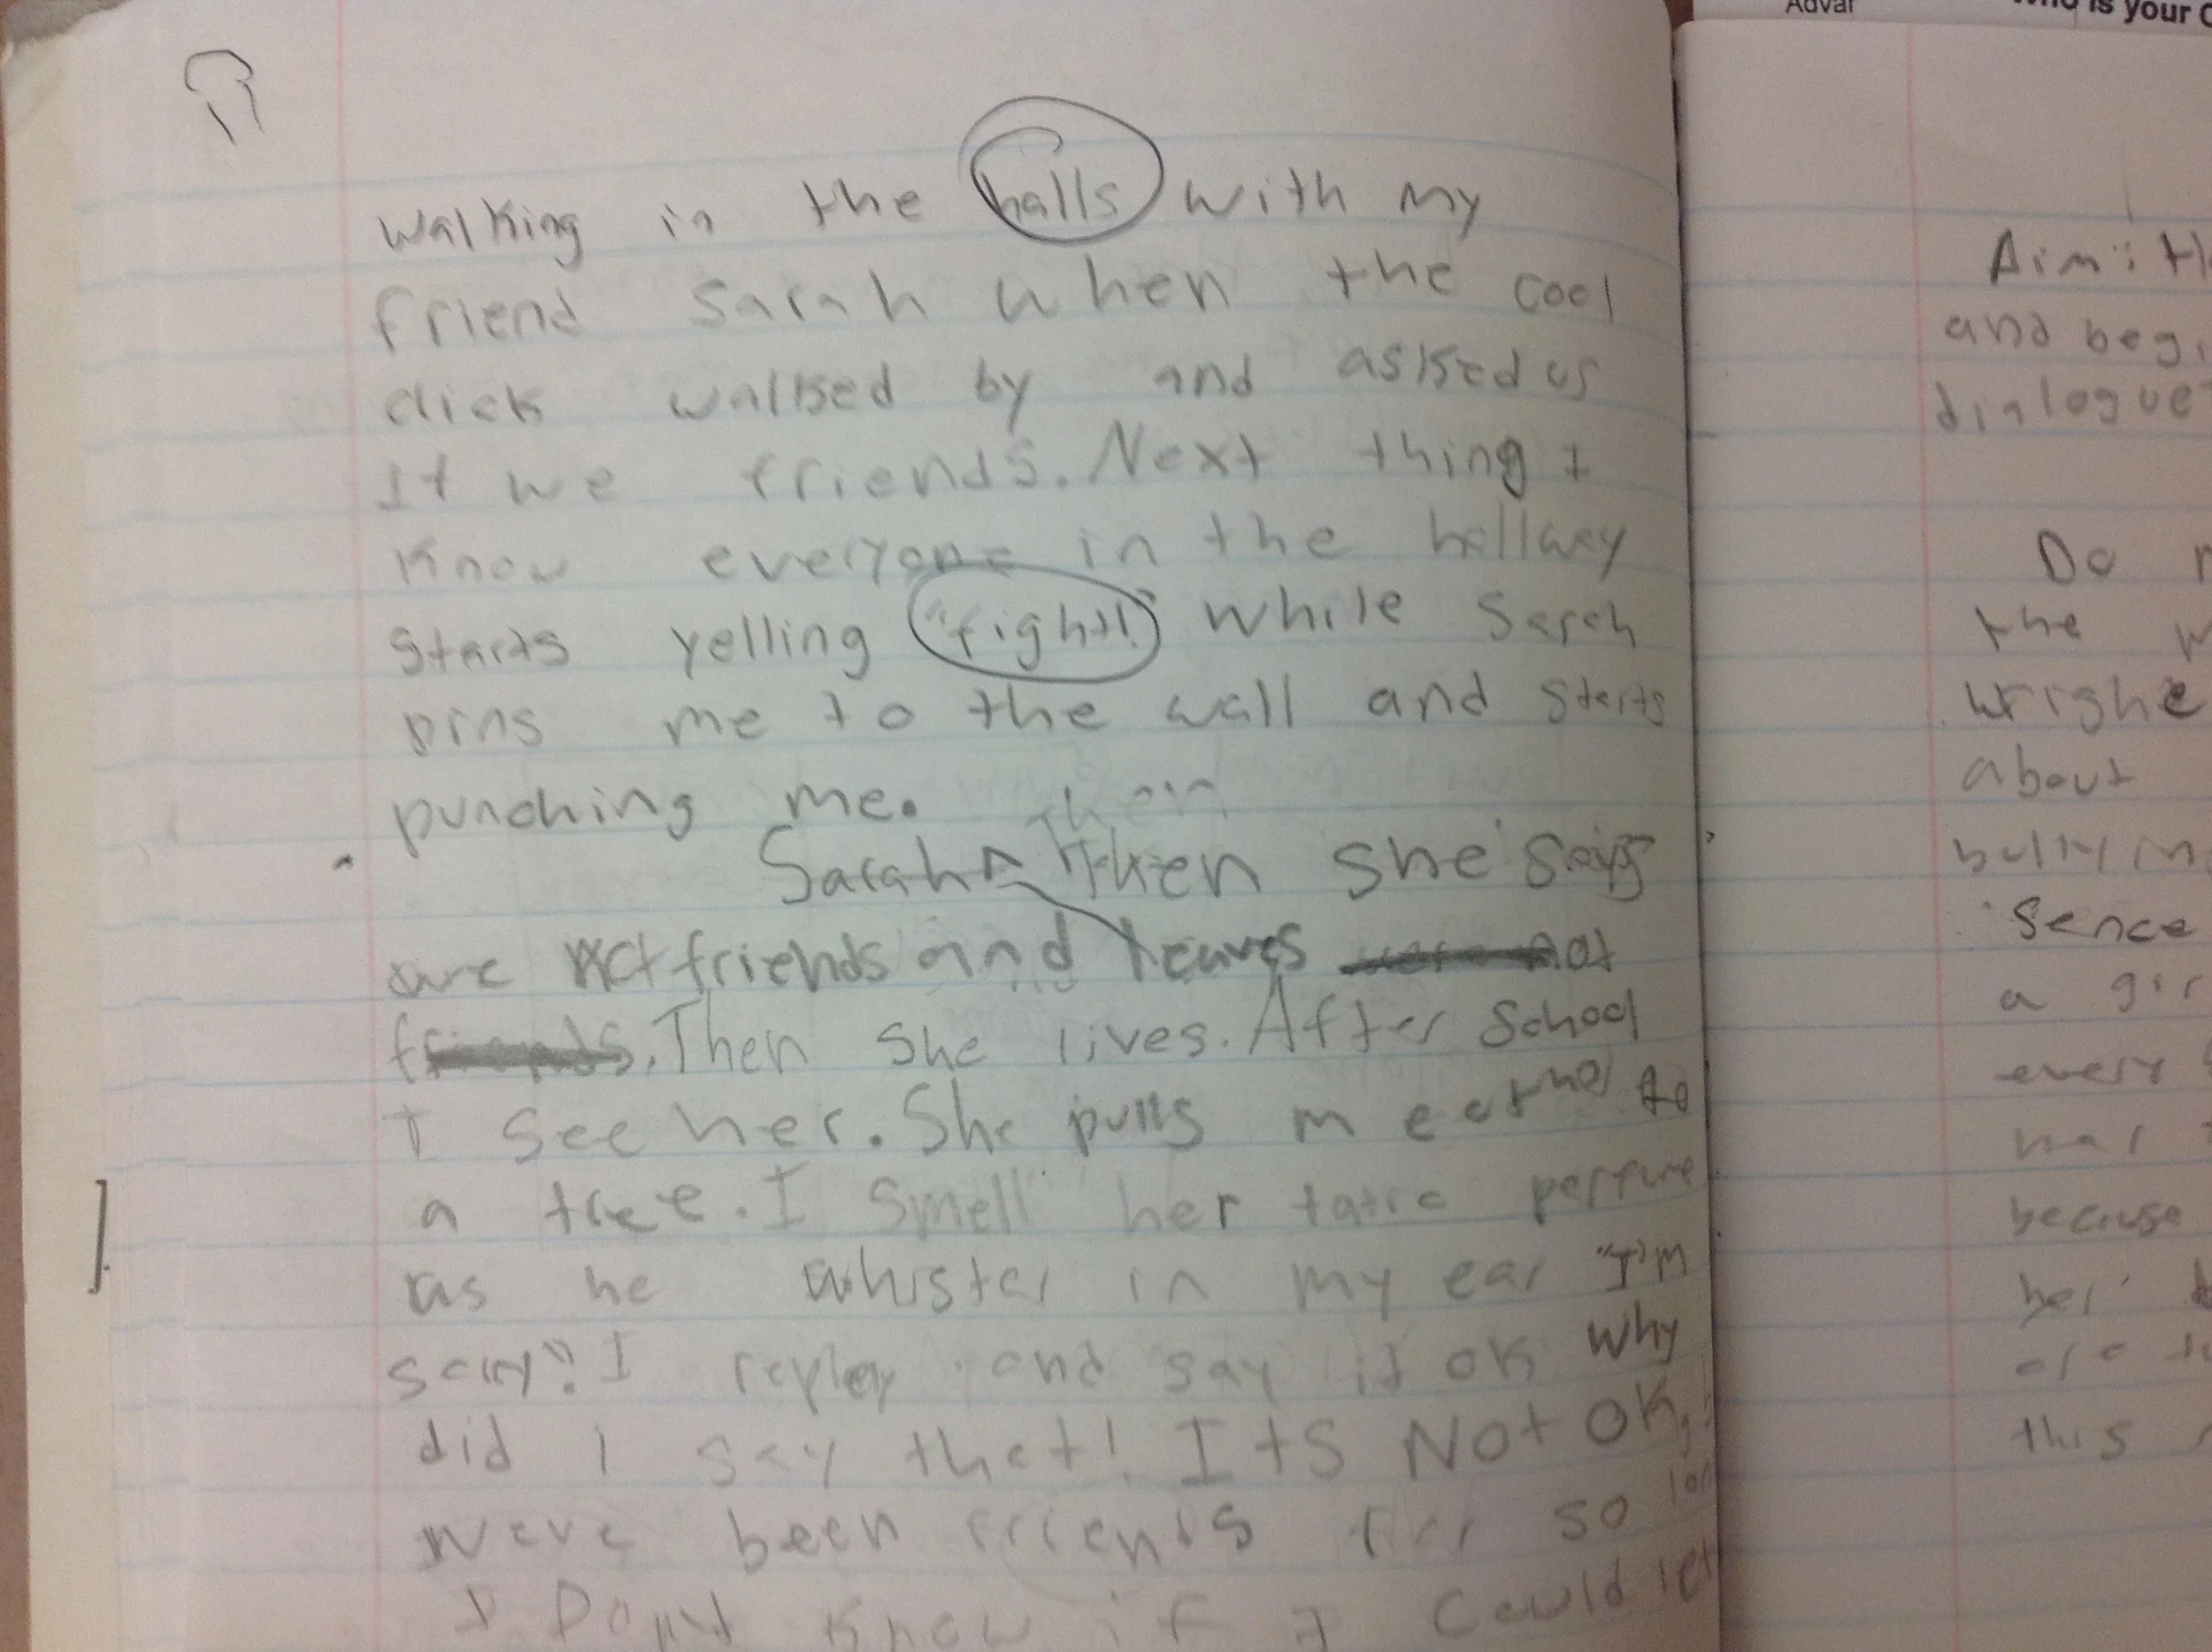 walking in the halls with my
friend Sarah when the cool
click walked by and asked us
If we friends. Next thing I
know everyone in the hallway
starts yelling "fight!" while Sarah
pins me to the wall and starts
punching me. Then
Sarah Then she says
are not friends and leaves not
friends. Then she lives. After school
I see her. She pulls me to
a tree. I smell her perfume
as he whister in my ear "I'm
sorry". I replay and say it ok why
did I say that! Its Not OK!
weve been friends for so
I Don't know if I could let
Advar
is your
Aim:
and
dialogue
Do
the
wrighe
about
Sence
a
every
because
her
this